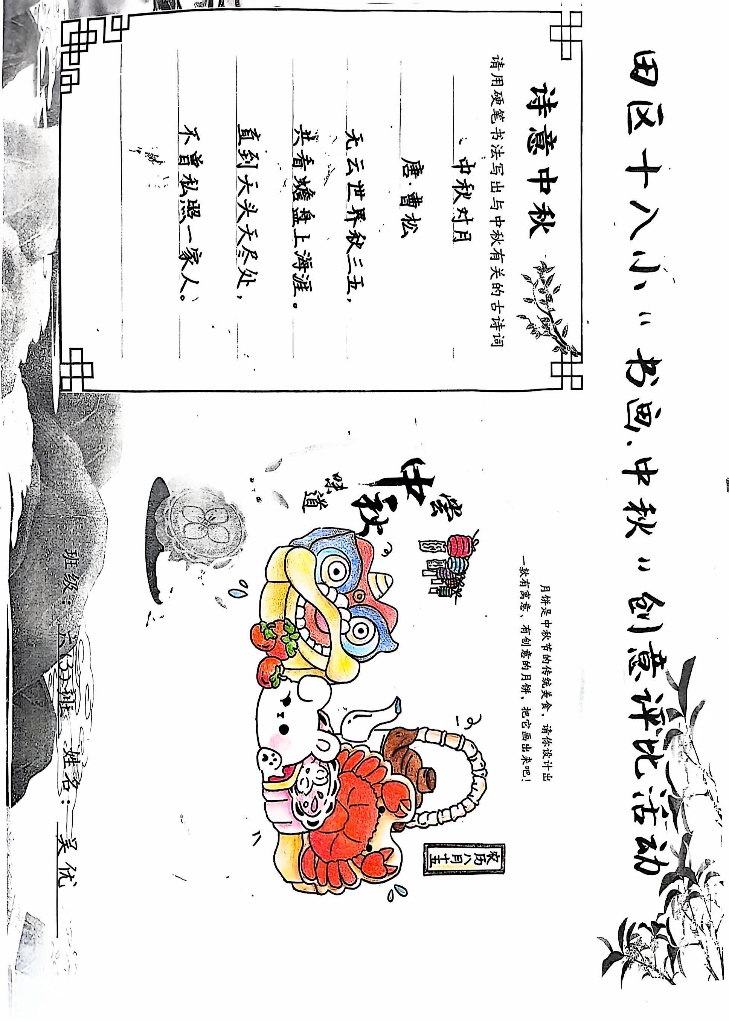 田区十八小“书画中秋”创意评比活动
诗意中秋
请用硬笔书法写出与中秋有关的古诗词
中秋对月
唐·曹松
无云世界秋三五，
共看蟾盘上海涯。
直到天头天尽处，
不曾私照一家人。
月饼是中秋节的传统美食，请你设计出
一款有寓意、有创意的月饼，把它画出来吧！
尝
中秋
味道
农历八月十五
班级：六(3)班 姓名：吴优